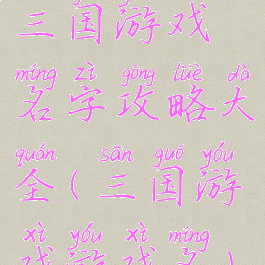 三国游戏
míng zì gōng lüè dà
名字攻略大
quán sān guó yóu
全(三国游
xì yóu xì míng
戏游戏名